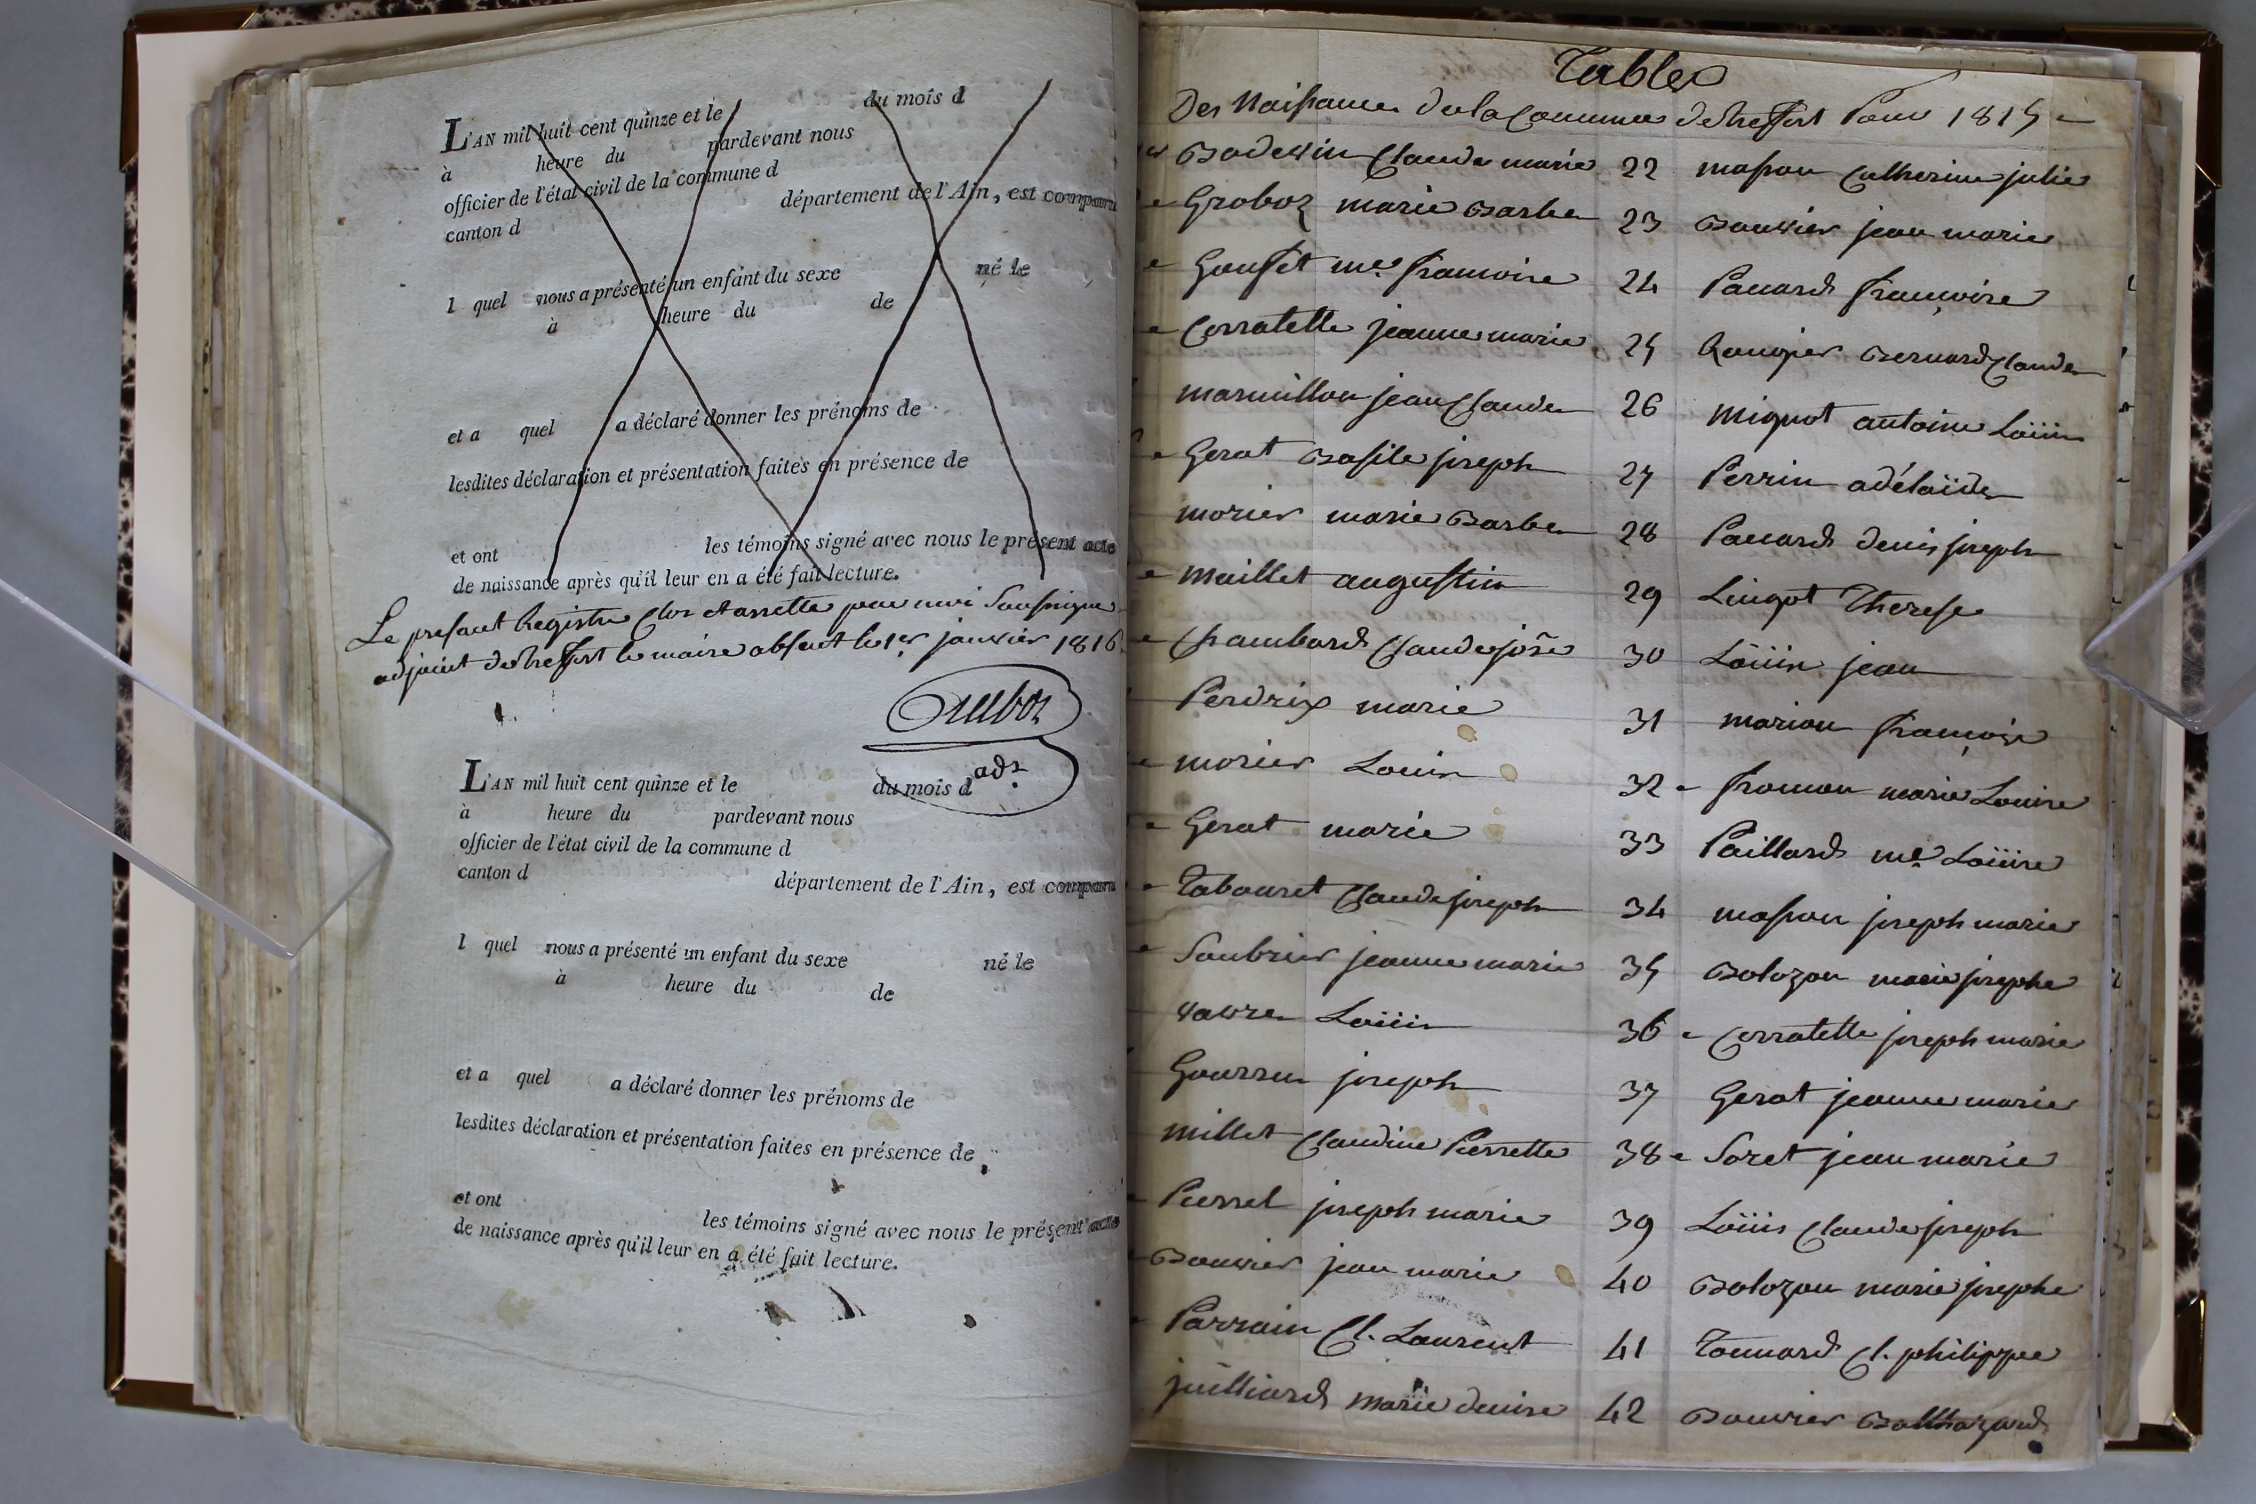 L'AN mil huit cent quinze et le du mois d
à heure du pardevant nous
officier de l'état civil de la commune d
canton d département de l'Ain, est comparu
l quel nous a présenté un enfant du sexe né le
à heure du de
et a quel a déclaré donner les prénoms de
lesdites déclaration et présentation faites en présence de
et ont les témoins signé avec nous le présent acte
de naissance après qu'il leur en a été fait lecture.
Le present Registre Clos et arretté par moi Soussigné
adjoint de treffort le maire absent le 1er janvier 1816
adjt
L'AN mil huit cent quinze et le du mois d
à heure du pardevant nous
officier de l'état civil de la commune d
canton d département de l'Ain, est comparu
l quel nous a présenté un enfant du sexe né le
à heure du de
et a quel a déclaré donner les prénoms de
lesdites déclaration et présentation faites en présence de
et ont les témoins signé avec nous le présent acte
de naissance après qu'il leur en a été fait lecture.
Tables
Des Naissances de la Commune de treffort Pour 1815
Claude marie 22 masson Catherine julie
Groboz marie Barbe 23 Bouvier jean marie
me francoise 24 Pauard françoise
Corratette jeanne marie 25 Bernard Claude
marmillon jean Claude 26 Mignot antoine Loüis
Gerat Basile joseph 27 Perrin adélaïde
morier marie Barbe 28 Pauard denis joseph
maillet augustin 29 Lingot Therese
Chambard Claude jose 30 Loüis jean
Perdrix marie 31 marion françoise
morier Louis 32 froman marie Louise
Gerat marie 33 Paillard me Loüise
Tabouret Claude joseph 34 masson joseph marie
Soubrier jeanne marie 35 Bolozon marie josephe
Loüis 36 Corratette joseph marie
joseph 37 Gerat jeanne marie
millet Claudine Pierrette 38 Soret jean marie
Pierrel joseph marie 39 Loüis Claude joseph
Bouvier jean marie 40 Bolozon marie josephe
Parrain Cl. Laurent 41 Tonnard Cl. philippe
juilliard marie denise 42 Bouvier Balthazard